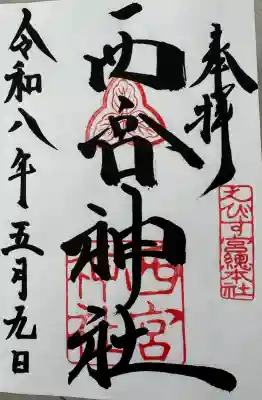 奉拝
えびす宮總本社
西宮神社
西宮神社
令和八年五月九日